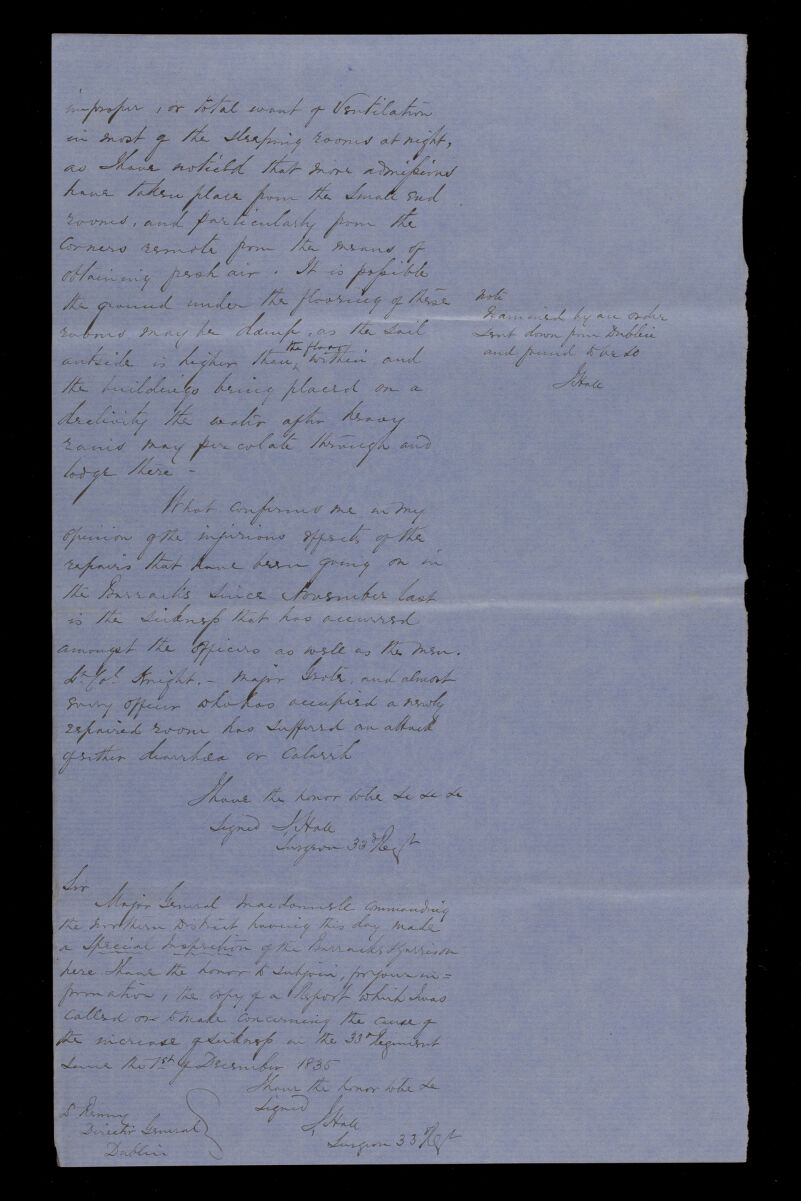 improper, or total want of Ventilation
in most of the sleeping rooms at night,
as I have noticed that more admissions
have taken place from the small end
rooms, and particularly from the
corners remote from the means of
obtaining fresh air. It is possible
the ground under the flooring of these
rooms may be damp, as the soil
outside is higher than the floor within and
the buildings being placed on a
declivity the water after heavy
rains may percolate through and
lodge there -
Note
Examined by an order
sent down from Dublin
and found to be so
J Hall
What confirms me in my
opinion of the injurious effects of the
repairs that have been going on in
the Barracks since November last
is the sickness that has occurred
amongst the officers as well as the men.
Lt Col Knight. - Major Grote, and almost
every officer who has occupied a newly
repaired room has suffered an attack
of either diarrhœa or Catarrh
I have the honor to be &c &c &c
Signed J Hall
Surgeon 33d Regt
Sir
Major General Macdonnell Commanding
the Northern District having this day made
a Special Inspection of the Barracks & Garrison
here I have the honor to subjoin, for your in=
formation, the copy of a Report which I was
called on to make concerning the cause of
the increase of sickness in the 33d Regiment
since the 1st of December 1835
I have the honor to be &c
Signed
J Hall
Surgeon 33d Regt
Dr Renny
Director General
Dublin